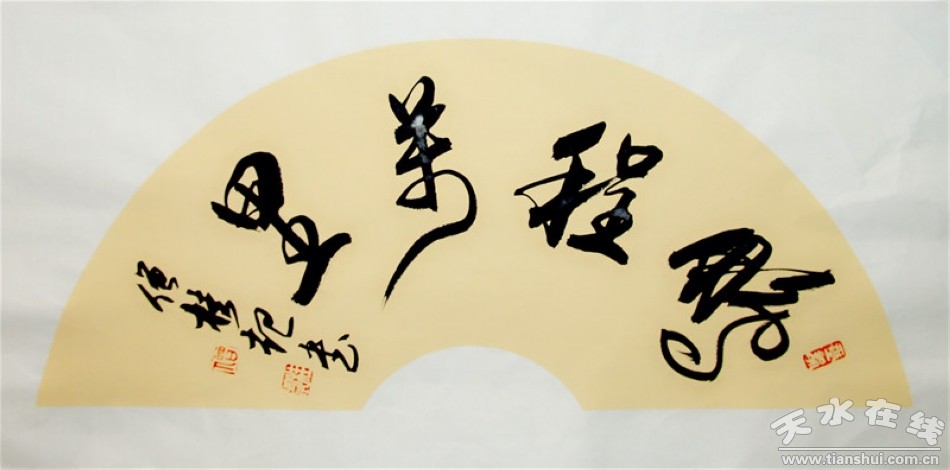 鵬程萬里
桂 书
天水在线
www.tianshui.com.cn